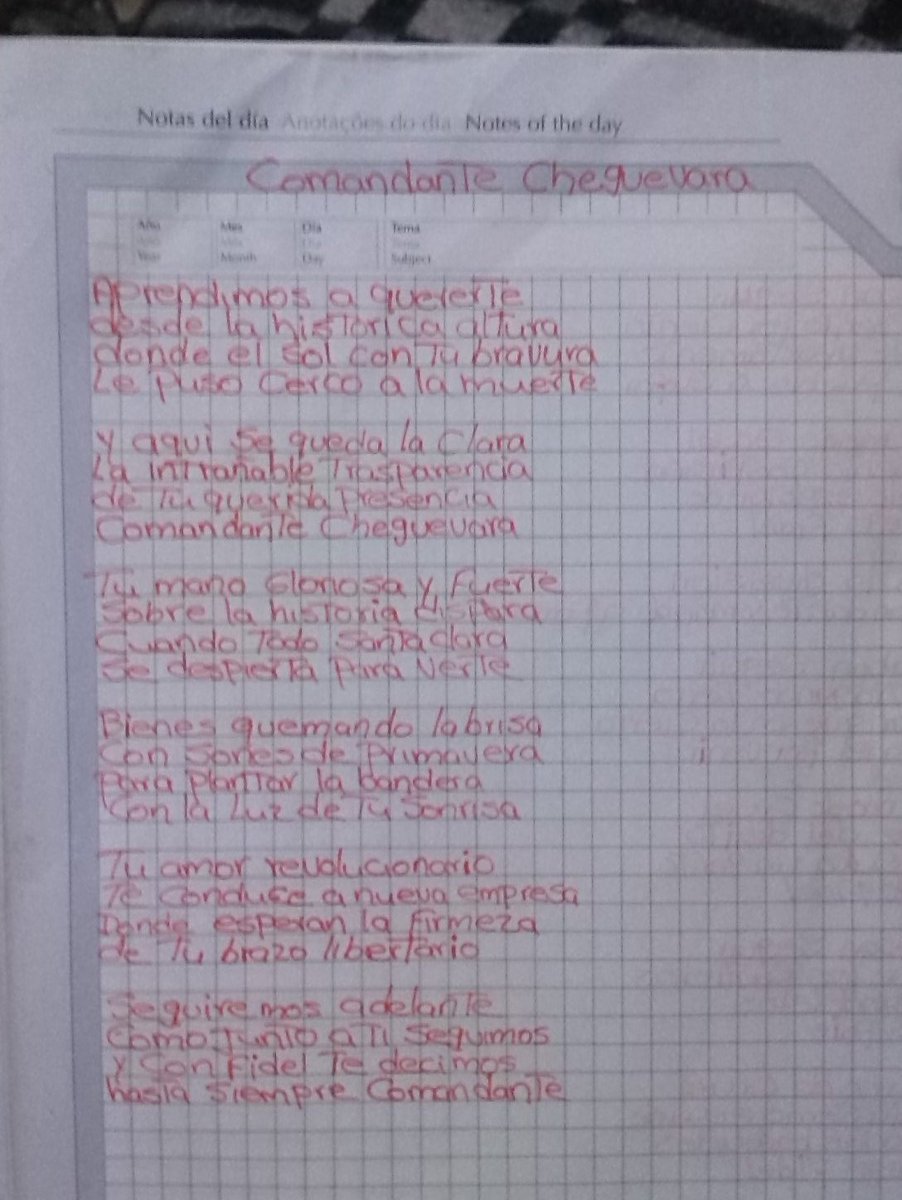 Notas del día Anotações do dia Notes of the day
Comandante Cheguevara
Año Mes Día Tema
Year Month Day Subject
Aprendimos a quererte
desde la historica altura
donde el sol con Tu bravura
Le puso Cerco a la muerte
y aqui Se queda la Clara
La intrañable Trasparencia
de Tu querida Presencia
Comandante Cheguevara
Tu mano Gloriosa y Fuerte
Sobre la historia dispara
Cuando Todo Santa clara
Se despierta Para Verte
Bienes quemando la brisa
Con Sorles de Primavera
Para Plantar la bandera
Con la Luz de Tu Sonrisa
Tu amor revolucionario
Te Conduse a nueva empresa
Donde esperan la firmeza
de Tu brazo libertario
Seguiremos adelante
Como Junto a Ti Seguimos
y Con Fidel Te decimos
hasta Siempre Comandante